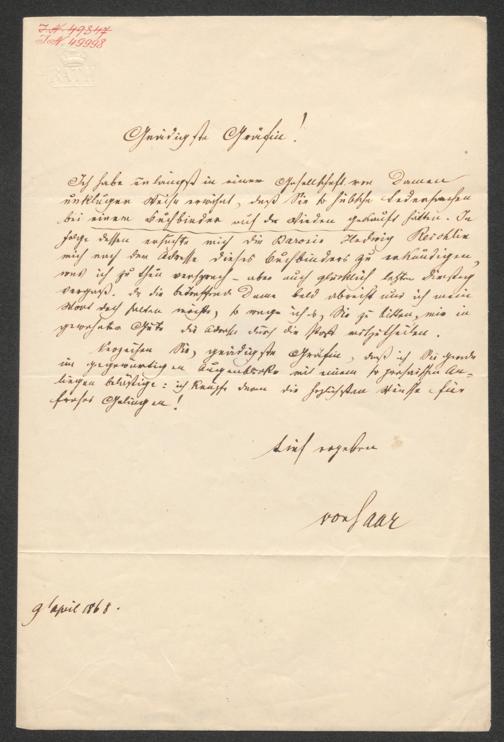 I.N. 49347
I.N. 49998
Gnädigste Gräfin!
Ich habe unlängst in einer Gesellschaft von Damen
unkluger Weise erwähnt, daß Sie so hübsche Ledersachen
bei einem Buchbinder auf der Wieden gekauft hätten. In
Folge dessen ersuchte mich die Baronin Hedwig
mich nach der Adresse dieses Buchbinders zu erkundigen,
was ich zu thun versprach – aber auch glücklich letzten Dienstag
vergaß. Da die betreffende Dame bald abreist und ich mein
Wort doch halten möchte, so wage ich es, Sie zu bitten, mir in
gewohnter Güte die Adresse durch die Post mitzutheilen.
Verzeihen Sie, gnädigste Gräfin, daß ich Sie gerade
im gegenwärtigen Augenblicke mit einem so prosaischen An-
liegen belästige: ich knüpfe daran die herzlichsten Wünsche für
Gelingen!
Tief ergeben
von Saar
9 April 1868.